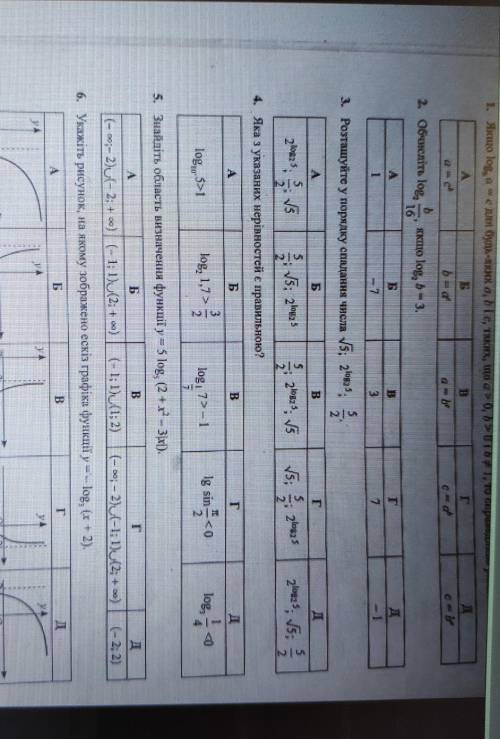 1. Якщо log_b a = c для будь-яких a, b і c, таких, що a > 0, b > 0 і b ≠ 1, то
А Б В Г Д
a = c^b b = a^c a = b^c c = a^b c = b^a
2. Обчисліть log₂ b/16, якщо log₂ b = 3.
А Б В Г Д
1 −7 3 7 −1
3. Розташуйте у порядку спадання числа √5; 2^(log₂ 5); 5/2.
А Б В Г Д
2^(log₂ 5); 5/2; √5 5/2; √5; 2^(log₂ 5) 5/2; 2^(log₂ 5); √5 √5; 5/2; 2^(log₂ 5) 2^(log₂ 5); √5; 5/2
4. Яка з указаних нерівностей є правильною?
А Б В Г Д
log_π 5>1 log₂ 1,7 > 3/2 log_(1/7) 7 > −1 lg sin π/2 < 0 log₃ 1/4 <0
5. Знайдіть область визначення функції y = 5 log₅ (2 + x² − 3|x|).
А Б В Г Д
(− ∞; − 2)∪(− 2; + ∞) (− 1; 1)∪(2; + ∞) (− 1; 1)∪(1; 2) (− ∞; − 2)∪(−1; 1)∪(2; + ∞) (− 2; 2)
6. Укажіть рисунок, на якому зображено ескіз графіка функції y = − log₃ (x + 2).
А Б В Г Д
y y y y y